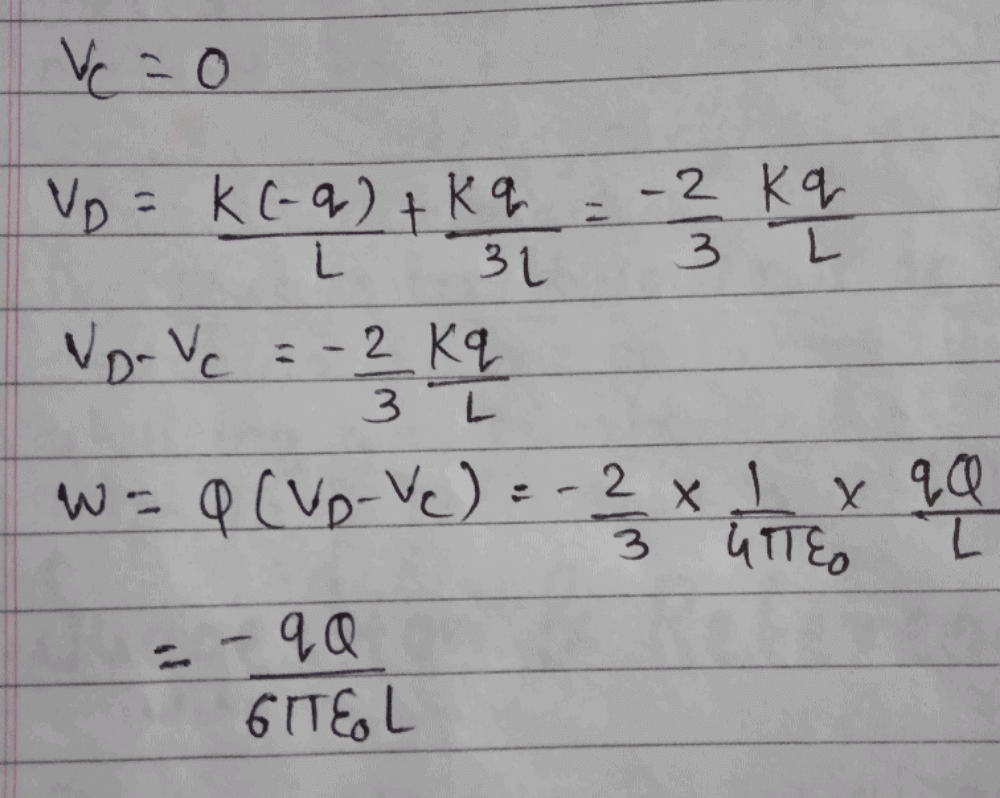 V_C = 0
V_D = K(-q)/L + Kq/3L = -2/3 Kq/L
V_D - V_C = -2/3 Kq/L
W = Q(V_D - V_C) = -2/3 × 1/4πε₀ × qQ/L
= -qQ/6πε₀L